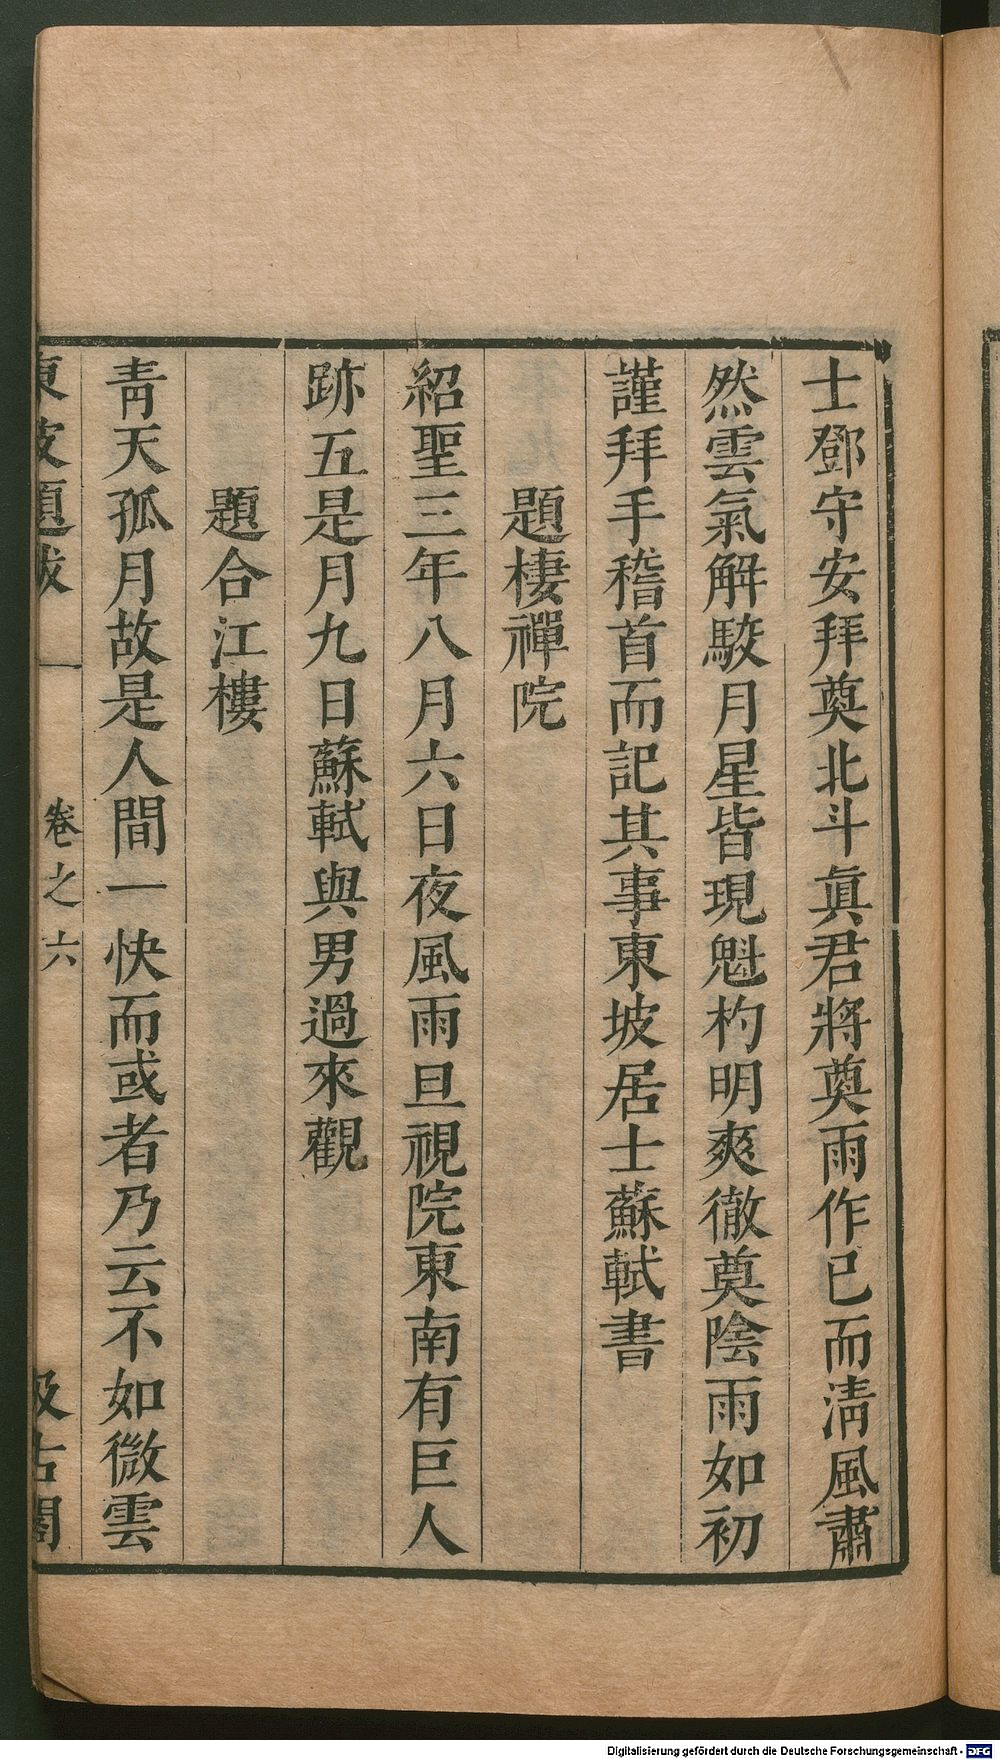 士鄧守安拜奠北斗眞君將奠雨作已而淸風肅
然雲氣解駮月星皆現魁杓明爽徹奠陰雨如初
謹拜手稽首而記其事東坡居士蘇軾書
題棲禪院
紹聖三年八月六日夜風雨旦視院東南有巨人
跡五是月九日蘇軾與男過來觀
題合江樓
靑天孤月故是人間一快而或者乃云不如微雲
東坡題跋 卷之六 汲古閣
Digitalisierung gefördert durch die Deutsche Forschungsgemeinschaft - DFG